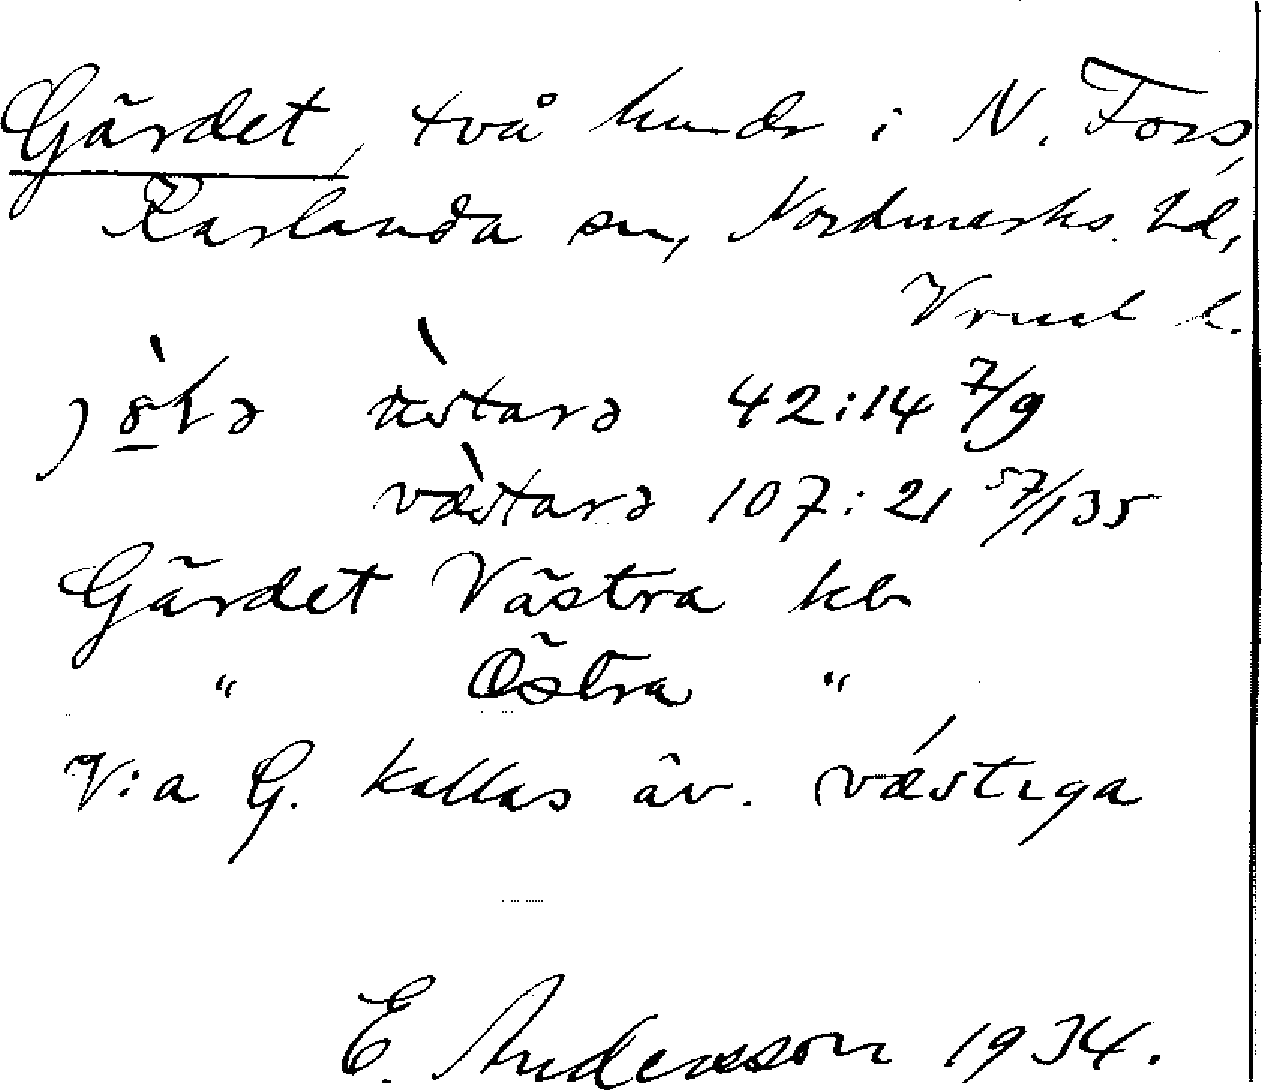 Gärdet, två hmdr i N. Fors,
Karlanda sn, Nordmarks hd,
Vrml l.
42:14 7/9
107:21 57/135
Gärdet Västra kb
" Östra "
V:a G. kallas äv. væstıga
E. Andersson 1934.